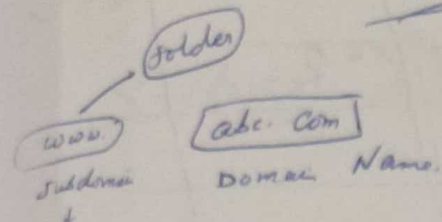 folder
www. abc. com
subdomai Domai Name.